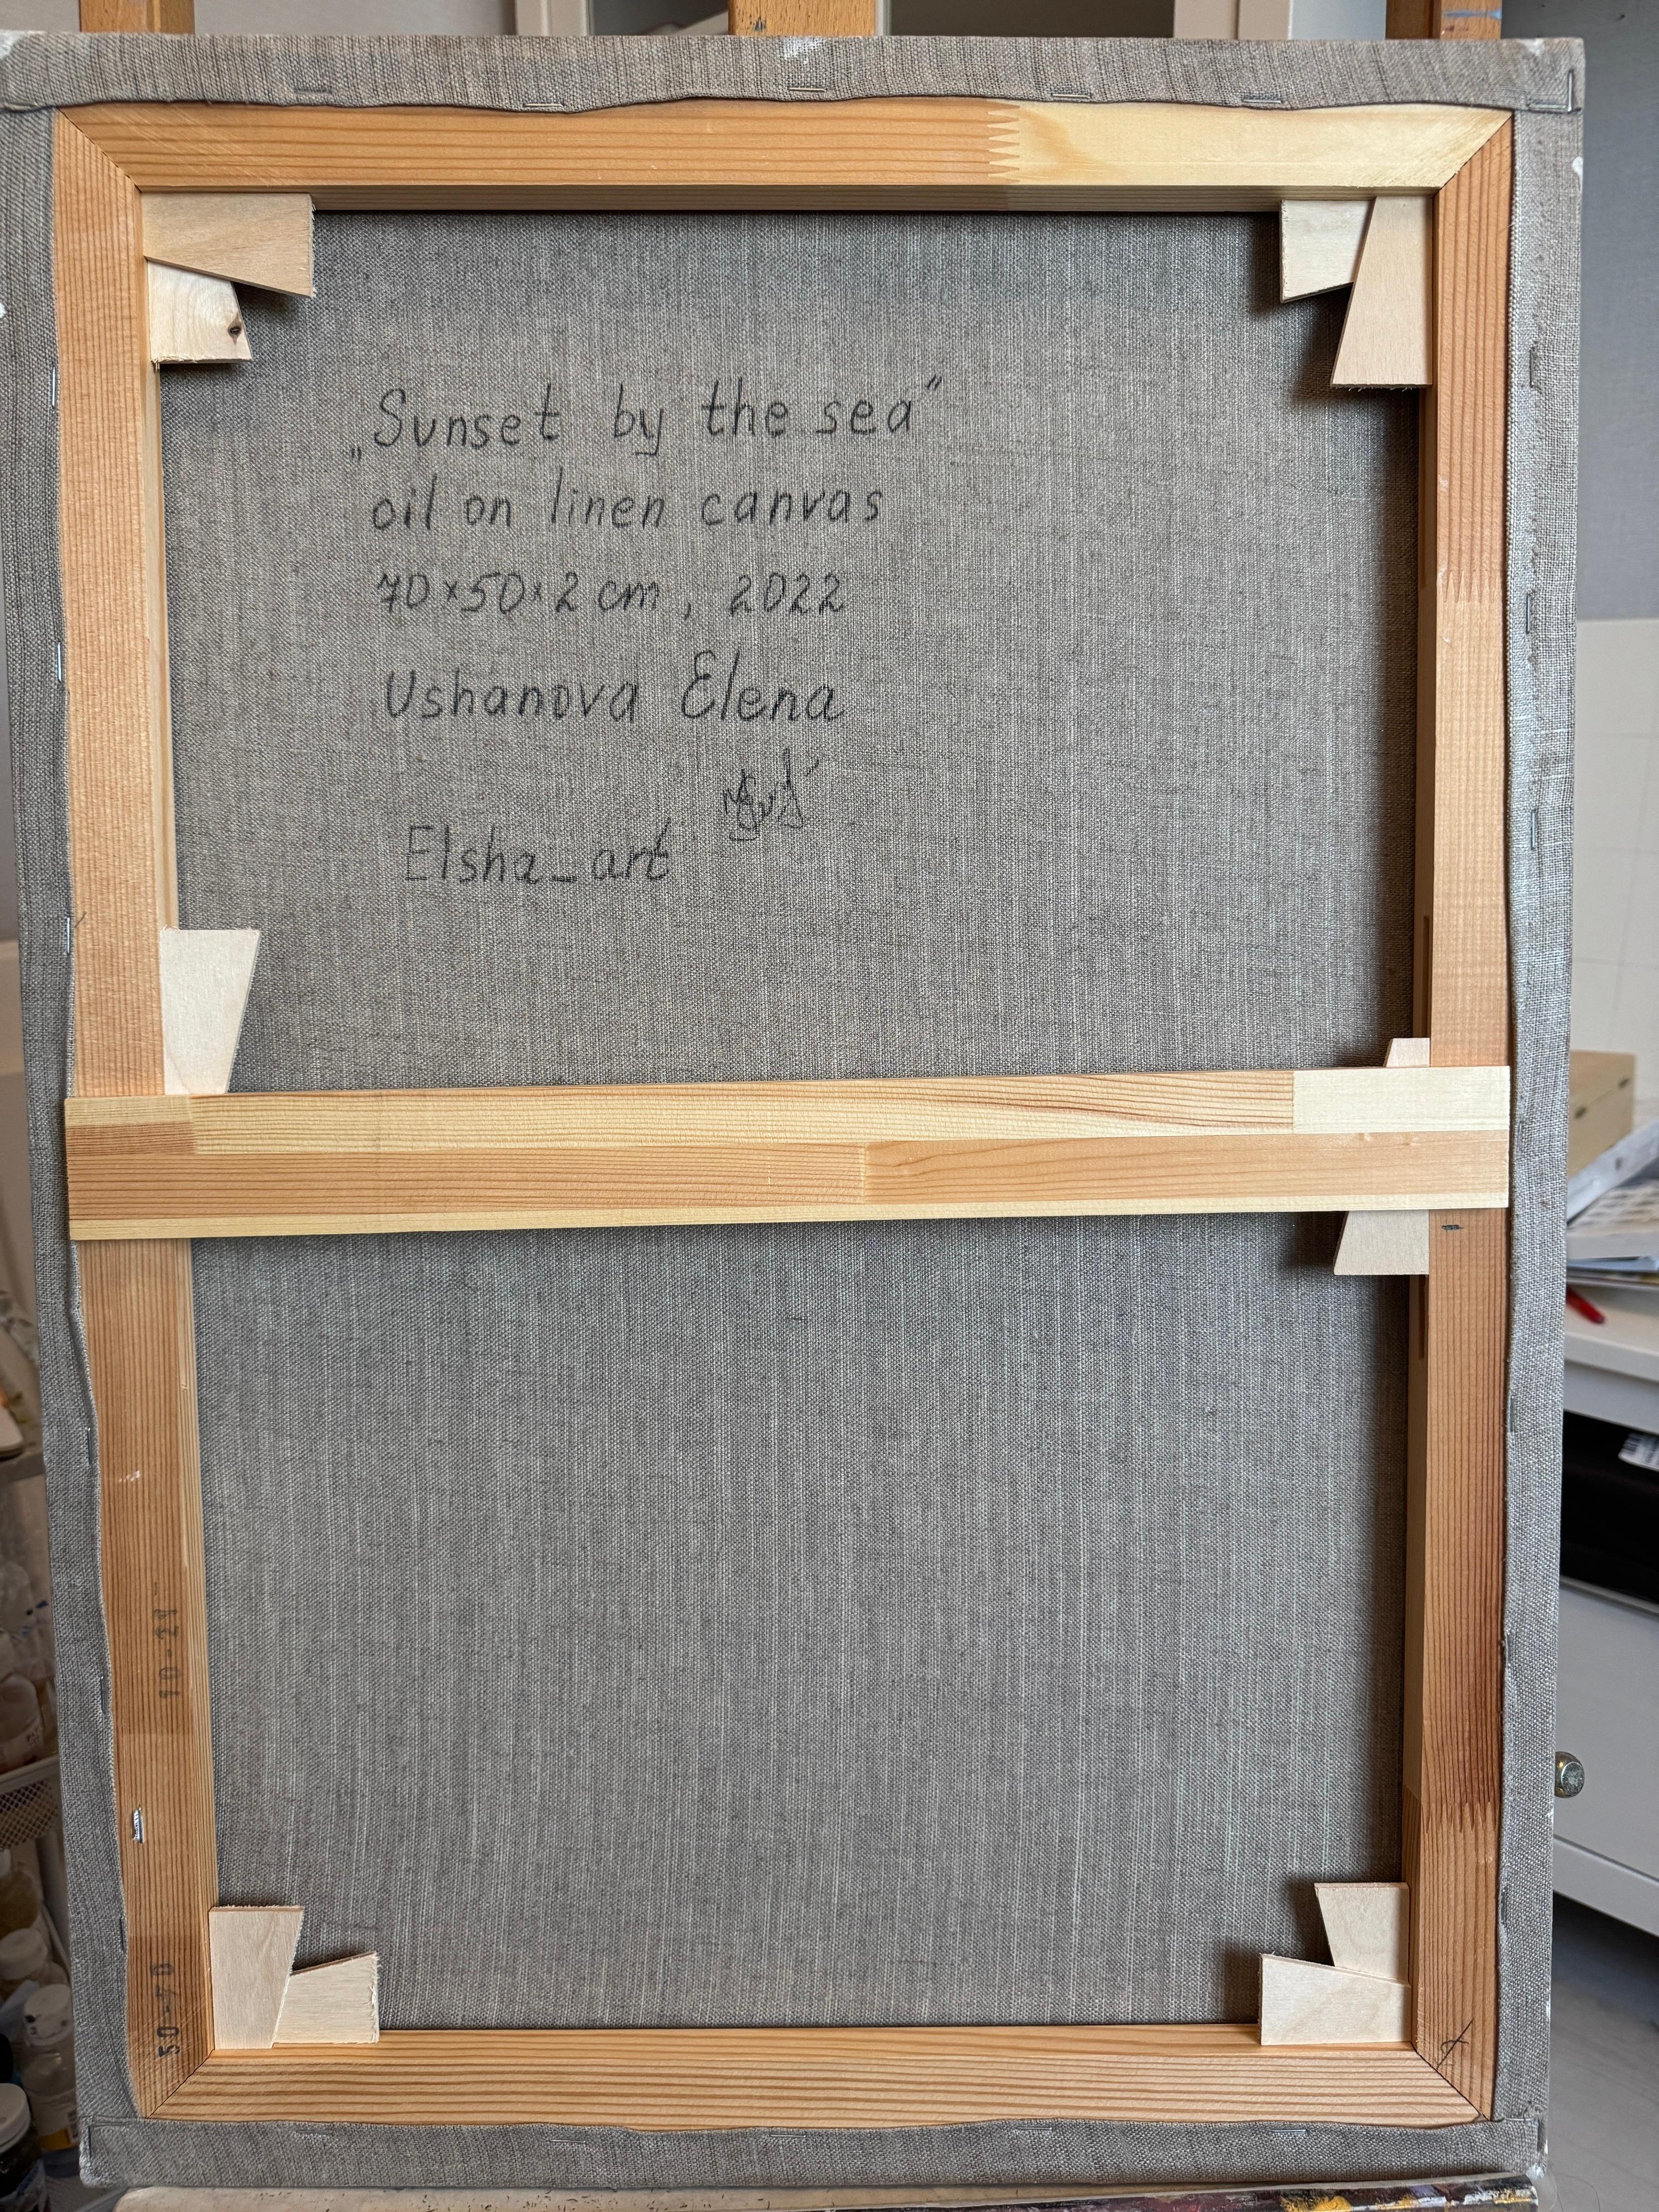 „Sunset by the sea"
oil on linen canvas
70×50×2 cm, 2022
Ushanova Elena
Elsha_art
50-70